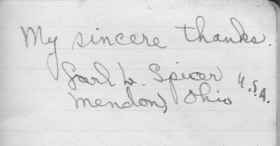 My sincere thanks.
Earl W. Spicer
Mendon, Ohio U.S.A.